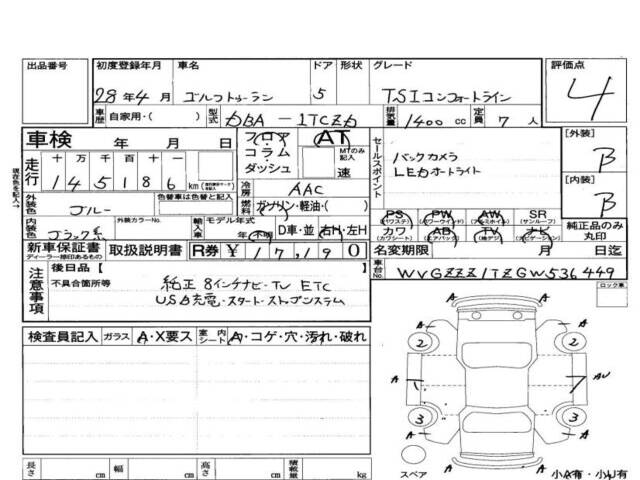 出品番号 初度登録年月 車名 ドア 形状 グレード 評価点
28年4月 ゴルフトゥーラン 5 TSIコンフォートライン 4
車歴 自家用・( ) 型式 DBA-1T 排気量 1400 cc 定員 7 人
車検 年 月 日 フロア コラム ダッシュ AT MTのみ記入 速
走行 十 万 千 百 十 一
1 4 5 1 8 6 km
セールスポイント バックカメラ
LEDオートライト
[外装] B
[内装] B
冷房 AAC
外装色 ブルー 色替車は色替と記入
燃料 ガソリン・軽油・( )
内装色 ブラック系 外装カラーNo. 輸入車 モデル年式 不明 D車・並 右H・左H
PS (パワステ) PW (パワーウインド) AW (アルミホイル) SR (サンルーフ)
カワ (カワシート) AB (エアバック) TV (純テレ) ナビ (ナビゲーション)
純正品のみ丸印
新車保証書 ディーラー捺印あるもの 取扱説明書 R券 ¥ 17,190 名変期限 月 日
車台No. WVGZZZ1TZGW536449
注意事項 後日品【 】
不具合箇所等 純正8インチナビ・TV ETC
USB充電・スタート・ストップシステム
ロック車
検査員記入 ガラス A・X要ス 室内シート A・コゲ・穴・汚れ・破れ
A A
A 2 2 A
A 1 7 AU
A 3 3 A
A A
スペア 小A有・小U有
長さ cm 幅 cm 高さ cm 積載量 kg
現在色を記入→